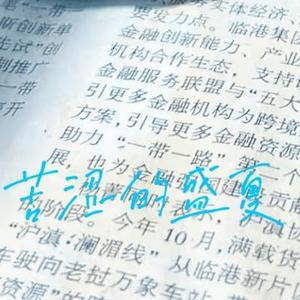 一带
新创新单
试”创
制推广
一带
声开
务实体经济、
要发力点。临港集
金融创新能力、产业
机构合作生态，支持
金融服务联盟与“五大
引更多金融机构为跨境
方案，引导更多金融资
助力“一带一路”第一个
展，也为金融
苦涩的盛夏
阶段。今年10月，满载货
“沪滇·澜湄线”从临港新片
车驶向老挝万象车站
资源”的